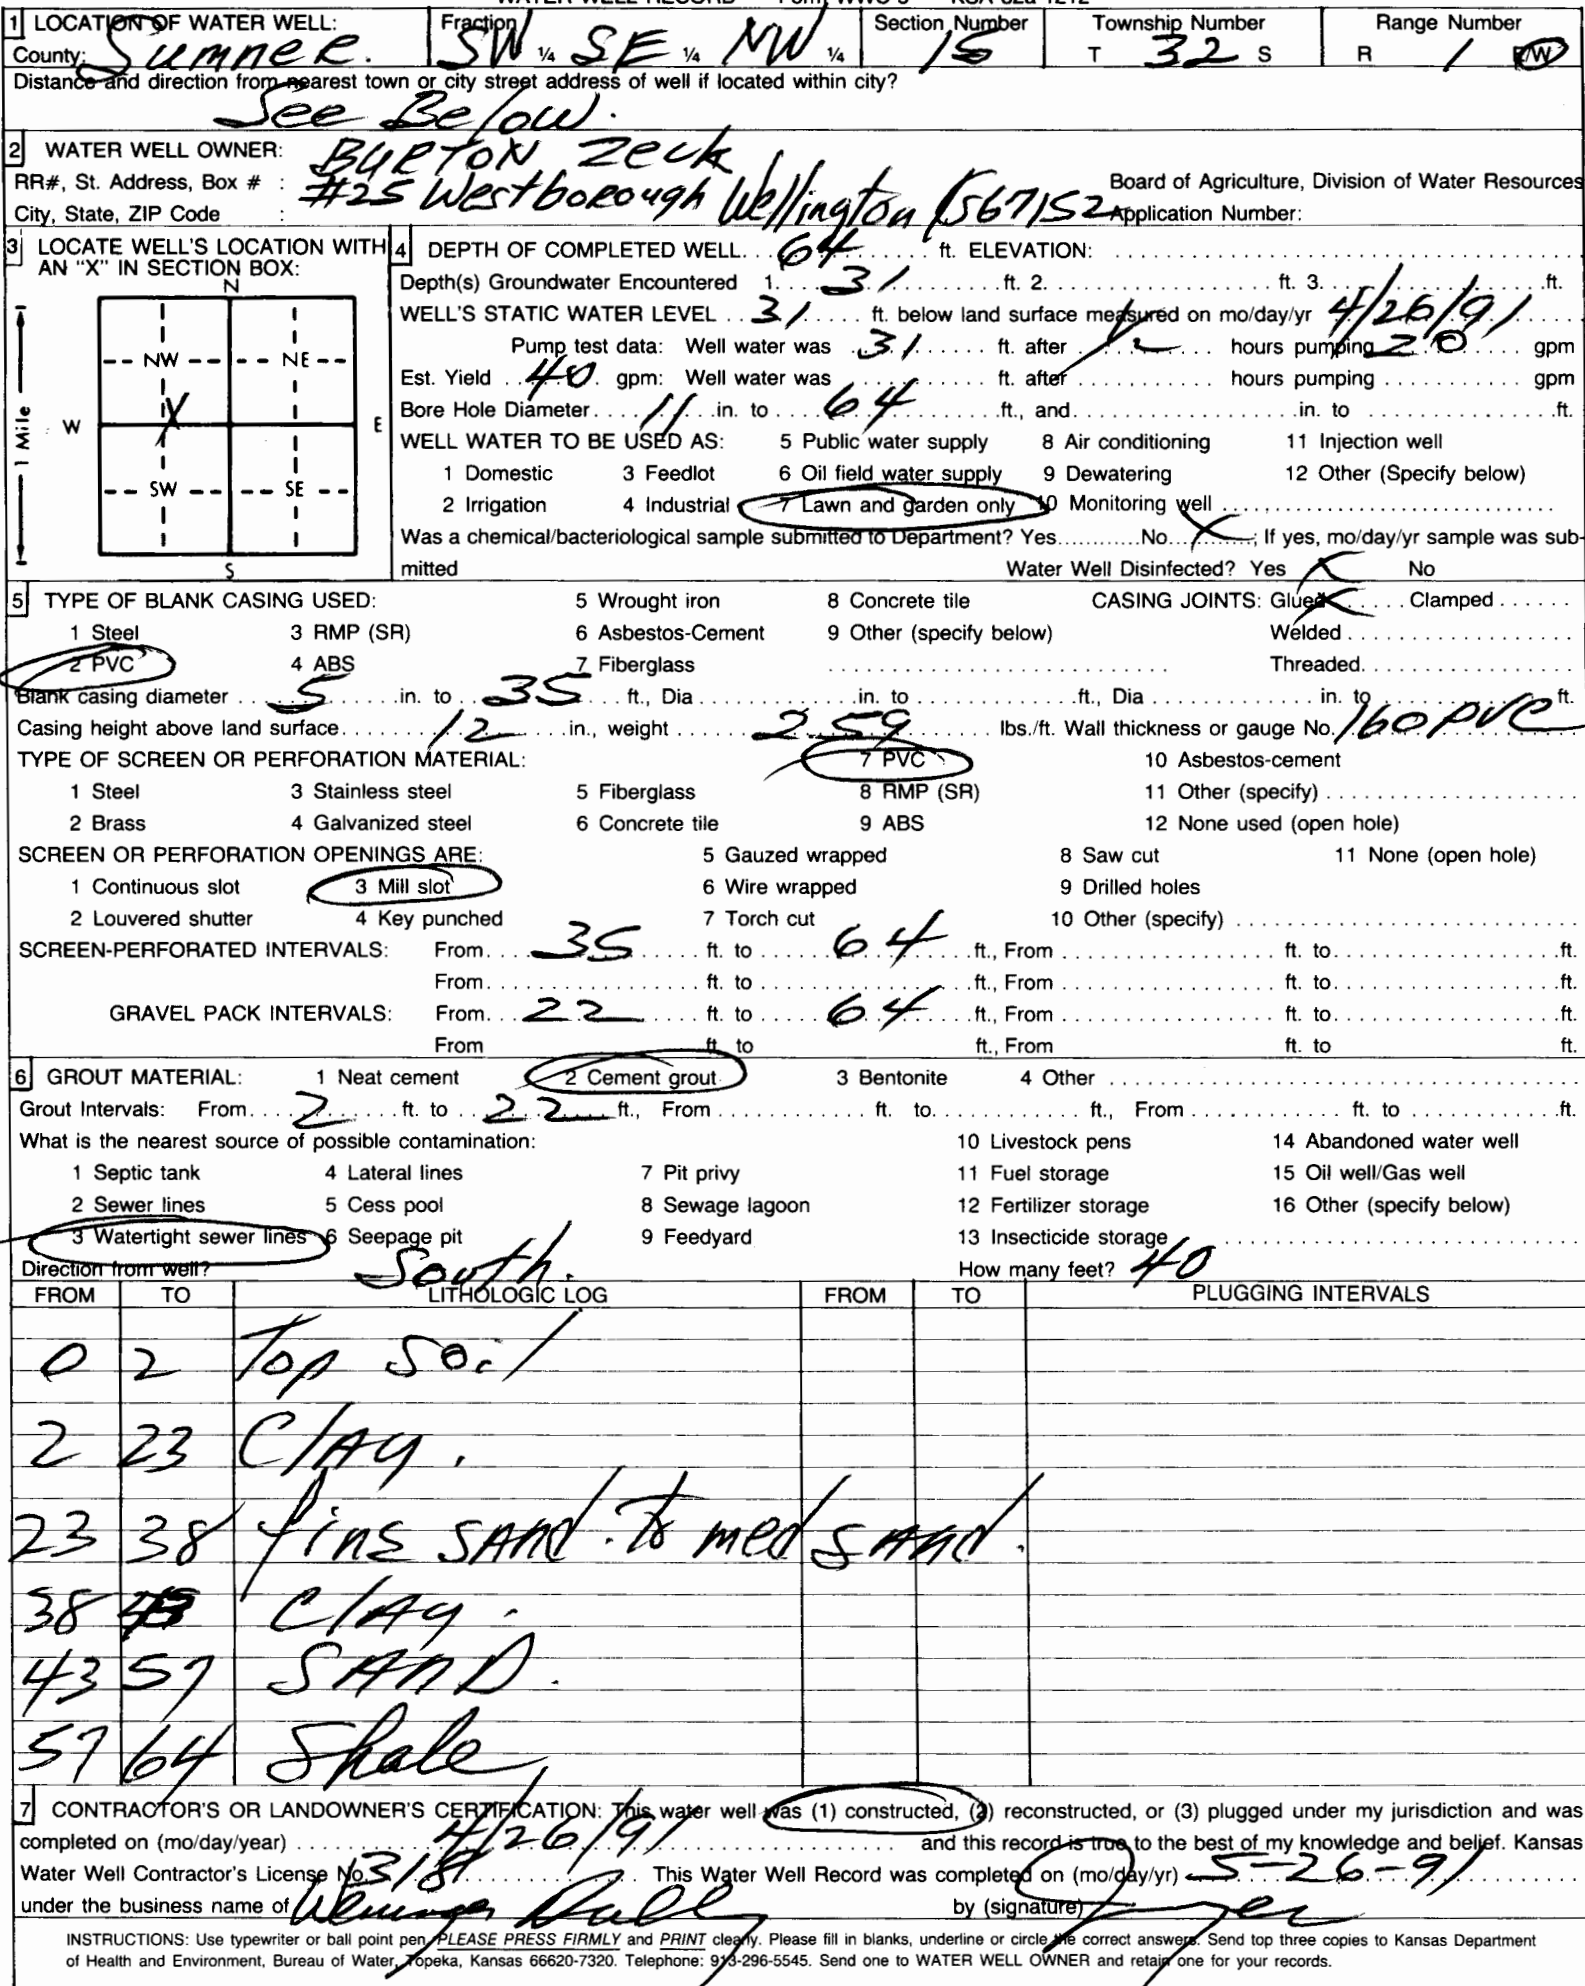 WATER WELL RECORD Form WWC-5 KSA 82a-1212
1 LOCATION OF WATER WELL: Fraction Section Number Township Number Range Number
County: Sumner. SW ¼ SE ¼ NW ¼ 15 T 32 S R 1 E/W
Distance and direction from nearest town or city street address of well if located within city?
See Below.
2 WATER WELL OWNER: BURTON Zeck
RR#, St. Address, Box # : #25 Westborough Wellington KS 67152 Board of Agriculture, Division of Water Resources
City, State, ZIP Code : Application Number:
3 LOCATE WELL'S LOCATION WITH AN "X" IN SECTION BOX:
N
NW NE
W X E
SW SE
S
1 Mile
4 DEPTH OF COMPLETED WELL. 64 ft. ELEVATION:
Depth(s) Groundwater Encountered 1. 31 ft. 2. ft. 3. ft.
WELL'S STATIC WATER LEVEL 31 ft. below land surface measured on mo/day/yr 4/26/91
Pump test data: Well water was 31 ft. after 1/2 hours pumping 20 gpm
Est. Yield 40 gpm: Well water was ft. after hours pumping gpm
Bore Hole Diameter 11 in. to 64 ft., and in. to ft.
WELL WATER TO BE USED AS: 5 Public water supply 8 Air conditioning 11 Injection well
1 Domestic 3 Feedlot 6 Oil field water supply 9 Dewatering 12 Other (Specify below)
2 Irrigation 4 Industrial 7 Lawn and garden only 10 Monitoring well
Was a chemical/bacteriological sample submitted to Department? Yes No X; If yes, mo/day/yr sample was sub-
mitted Water Well Disinfected? Yes X No
5 TYPE OF BLANK CASING USED: 5 Wrought iron 8 Concrete tile CASING JOINTS: Glued X Clamped
1 Steel 3 RMP (SR) 6 Asbestos-Cement 9 Other (specify below) Welded
2 PVC 4 ABS 7 Fiberglass Threaded
Blank casing diameter 5 in. to 35 ft., Dia in. to ft., Dia in. to ft.
Casing height above land surface 12 in., weight 259 lbs./ft. Wall thickness or gauge No. 160 PVC
TYPE OF SCREEN OR PERFORATION MATERIAL: 7 PVC 10 Asbestos-cement
1 Steel 3 Stainless steel 5 Fiberglass 8 RMP (SR) 11 Other (specify)
2 Brass 4 Galvanized steel 6 Concrete tile 9 ABS 12 None used (open hole)
SCREEN OR PERFORATION OPENINGS ARE: 5 Gauzed wrapped 8 Saw cut 11 None (open hole)
1 Continuous slot 3 Mill slot 6 Wire wrapped 9 Drilled holes
2 Louvered shutter 4 Key punched 7 Torch cut 10 Other (specify)
SCREEN-PERFORATED INTERVALS: From 35 ft. to 64 ft., From ft. to ft.
From ft. to ft., From ft. to ft.
GRAVEL PACK INTERVALS: From 22 ft. to 64 ft., From ft. to ft.
From ft. to ft., From ft. to ft.
6 GROUT MATERIAL: 1 Neat cement 2 Cement grout 3 Bentonite 4 Other
Grout Intervals: From 2 ft. to 22 ft., From ft. to ft., From ft. to ft.
What is the nearest source of possible contamination: 10 Livestock pens 14 Abandoned water well
1 Septic tank 4 Lateral lines 7 Pit privy 11 Fuel storage 15 Oil well/Gas well
2 Sewer lines 5 Cess pool 8 Sewage lagoon 12 Fertilizer storage 16 Other (specify below)
3 Watertight sewer lines 6 Seepage pit 9 Feedyard 13 Insecticide storage
Direction from well? South. How many feet? 40
FROM TO LITHOLOGIC LOG FROM TO PLUGGING INTERVALS
0 2 Top Soil
2 23 Clay.
23 38 fine sand. to med sand.
38 43 Clay.
43 57 SAND.
57 64 Shale
7 CONTRACTOR'S OR LANDOWNER'S CERTIFICATION: This water well was (1) constructed, (2) reconstructed, or (3) plugged under my jurisdiction and was
completed on (mo/day/year) 4/26/91 and this record is true to the best of my knowledge and belief. Kansas
Water Well Contractor's License No. 318 This Water Well Record was completed on (mo/day/yr) 5-26-91
under the business name of by (signature)
INSTRUCTIONS: Use typewriter or ball point pen, PLEASE PRESS FIRMLY and PRINT clearly. Please fill in blanks, underline or circle the correct answers. Send top three copies to Kansas Department
of Health and Environment, Bureau of Water, Topeka, Kansas 66620-7320. Telephone: 913-296-5545. Send one to WATER WELL OWNER and retain one for your records.